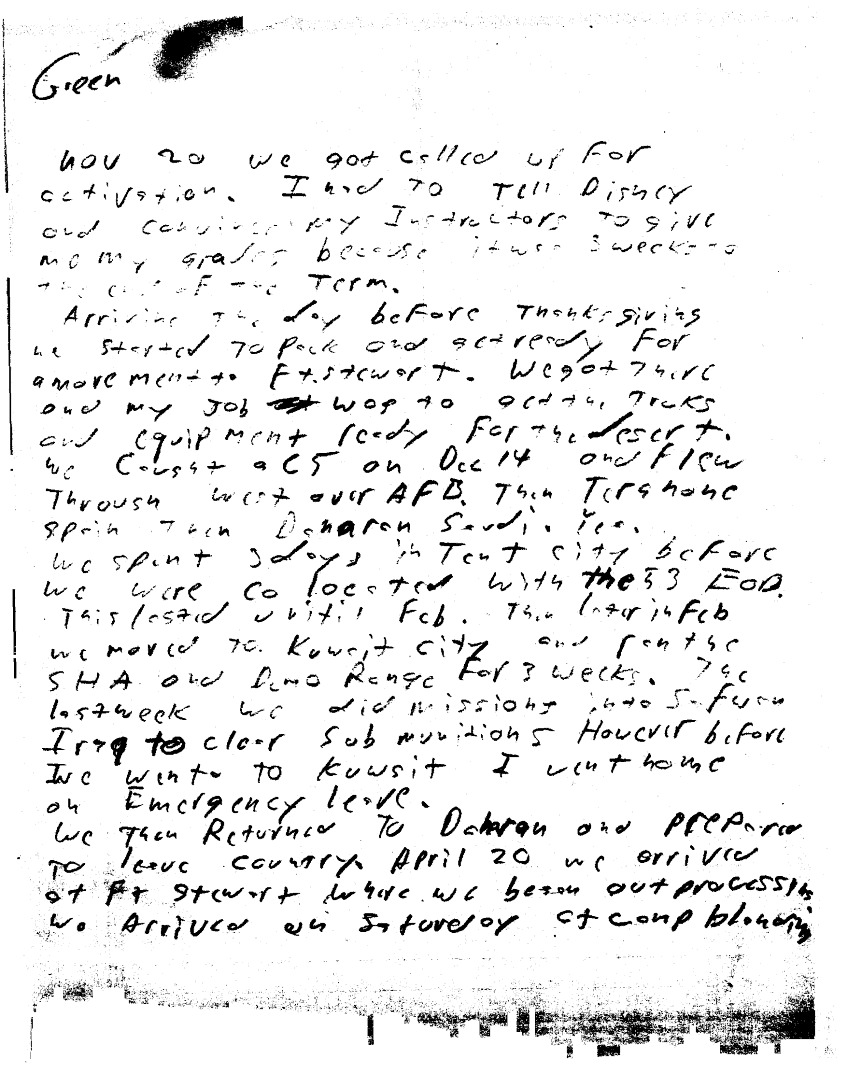 Green
Nov 20 we got called up For
activation. I had TO Tell Disney
and convince my Instructors TO give
me my grades because it was 3 weeks to
the end of the Term.
Arriving The day before Thanksgiving
we started TO Pack and get ready For
a movement to Ft. Stewart. We got There
and my Job was to get the Truks
and equipment ready For the desert.
We Caught a C5 on Dec 14 and Flew
Through West over AFB. Then
Spain Then Daharan Saudi.
We spent 3 days in Tent city before
we were co located with the 53 EOD.
This lasted until Feb. Then later in Feb
we moved TO Kuwait City and ran the
SHA and Demo Range For 3 weeks. The
last week we did missions into Safwan
Iraq to clear Sub munitions However before
we went TO Kuwait I went home
on Emergency leave.
We Then Returned TO Daharan and prepared
TO leave country. April 20 we arrived
at Ft Stewart where we began out processing
We Arrived on Saturday at camp blanding